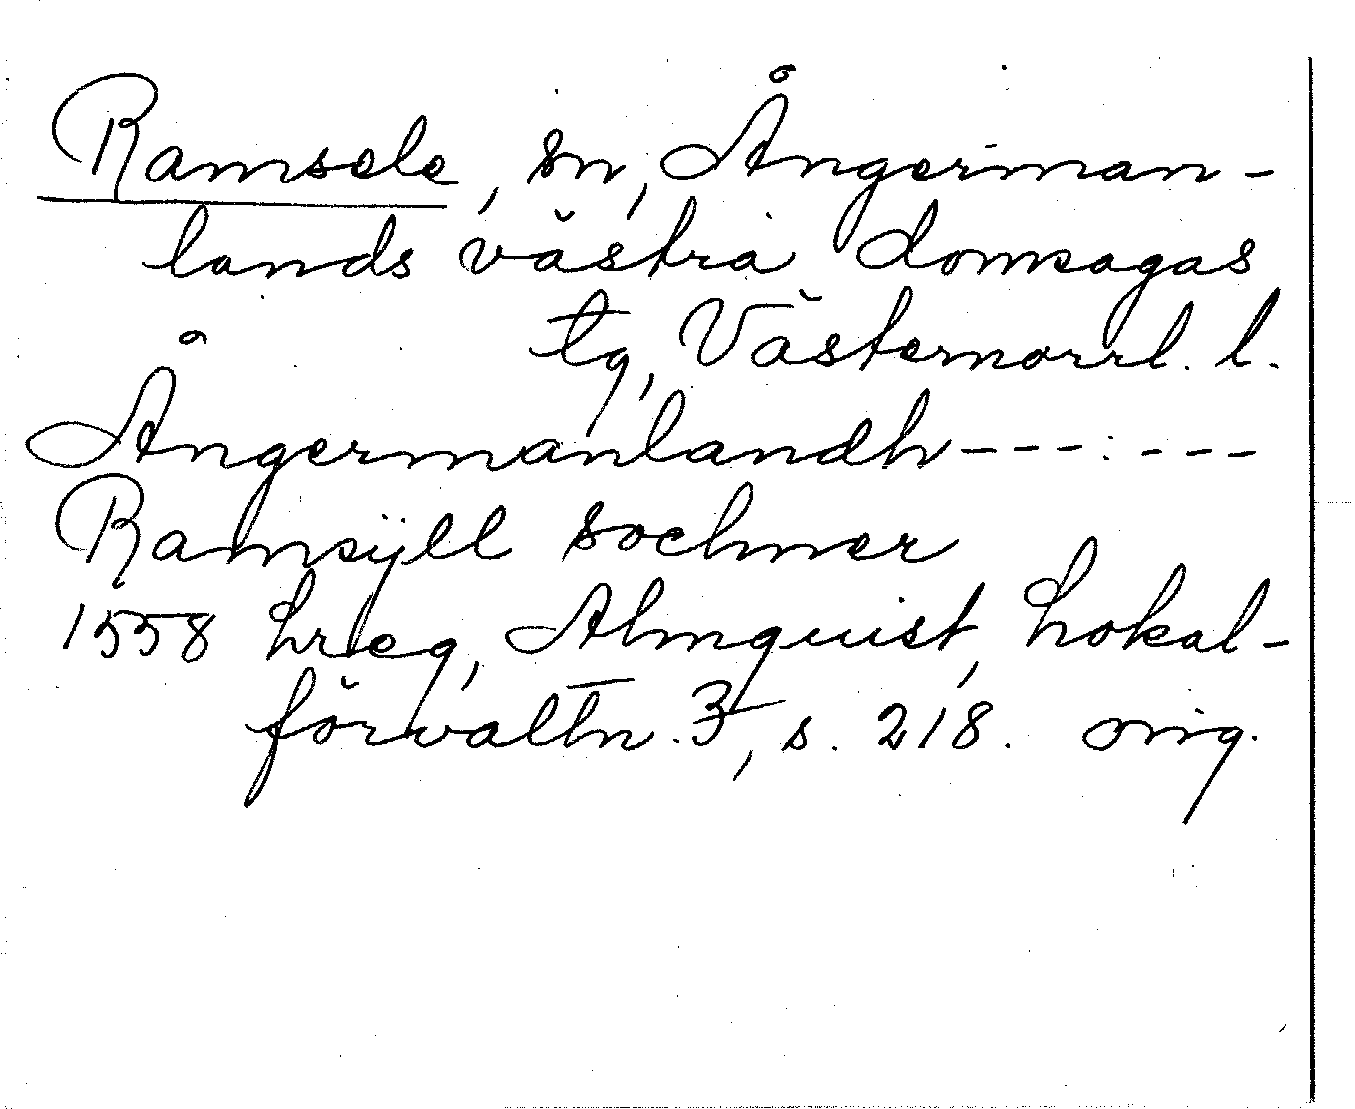 Ramsele, sn, Ångerman-
lands västra domsagas
tg, Västernorrl. l.
Ångermanlandh --- : ---
Ramsÿll sochner
1558 hreg, Almquist, Lokal-
förvaltn. 3, s. 218. orig.